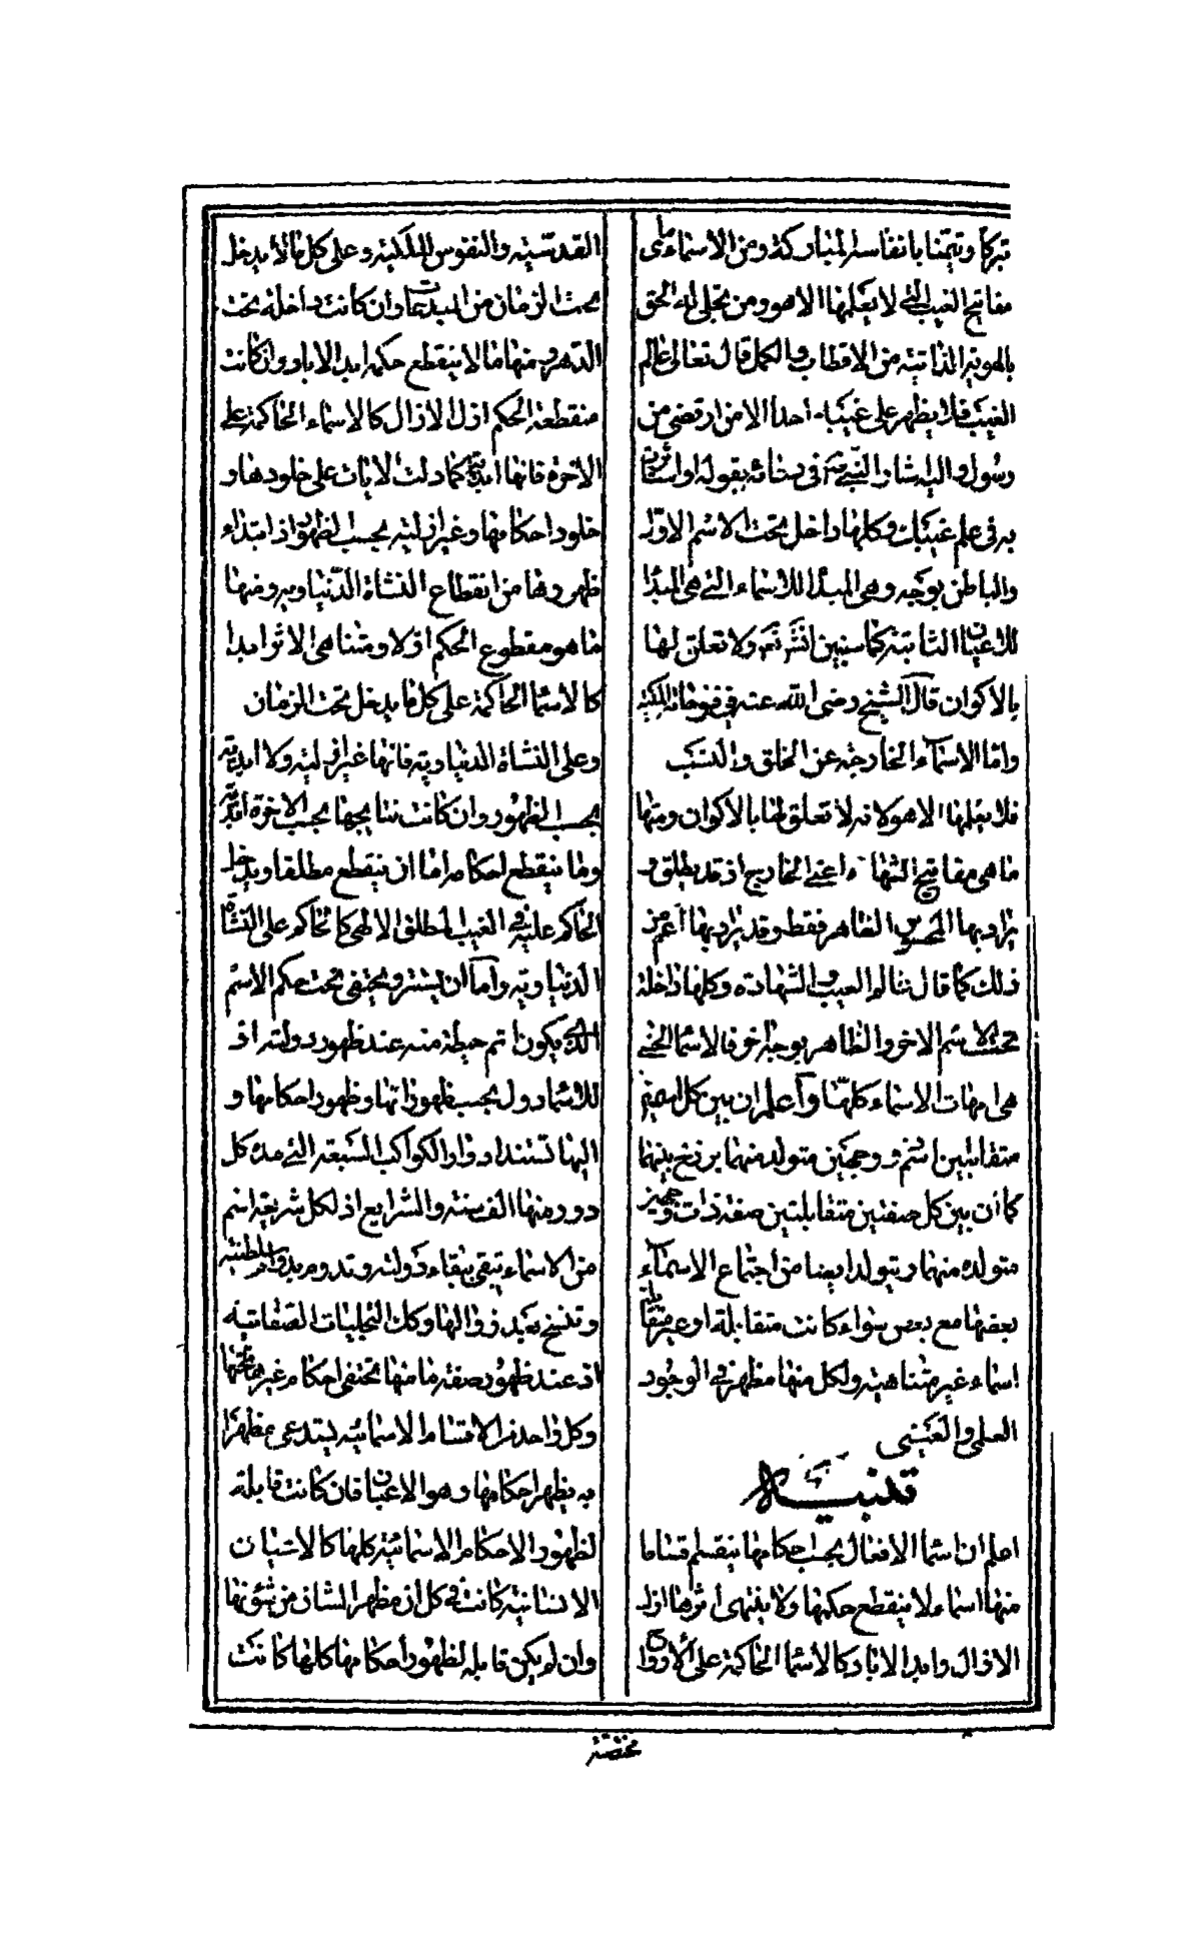 تبركا وتيمنا بانفاسه المباركة ومن الاسماء ما هى
مفاتيح الغيب التى لا يعلمها الا هو ومن تجلى له الحق
بالهوية الذاتية من الاقطاب والكمل قال تعالى عالم
الغيب فلا يظهر على غيبه احدا الا من ارتضى من
رسول واليه اشار النبى ص فى دعائه بقوله او استأثرت
به فى علم غيبك وكلها داخل تحت الاسم الاول
والباطن بوجه وهى المبدأ للاسماء التى هى المبدأ
للاعيان الثابتة كما سنبين انش تع ولا تعلق لها
بالاكوان قال الشيخ رضى الله عنه فى فتوحاته المكية
واما الاسماء الخارجة عن الخلق والنسب
فلا يعلمها الا هو لانه لا تعلق لها بالاكوان ومنها
ما هى مفاتيح الشهادة اعنى الخارج اذ قد يطلق و
يراد بها المحسوس الظاهر فقط وقد يراد بها أعم من
ذلك كما قال تعالى عالم الغيب والشهادة وكلها داخلة
تحت الاسم الاخر والظاهر بوجه اخر فالاسماء الحسنى
هى امهات الاسماء كلها واعلم ان بين كل اسمين
متقابلين اسم ذو وجهين متولد منهما برزخ بينهما
كما ان بين كل صفتين متقابلتين صفة ذات وجهين
متولدة منهما ويتولد ايضا من اجتماع الاسماء
بعضها مع بعض سواء كانت متقابلة او غير متقابلة
اسماء غير متناهية ولكل منها مظهر فى الوجود
العلمى والعينى
تنبيه
اعلم ان اسماء الافعال بحسب احكامها ينقسم اقساما
منها اسماء لا ينقطع حكمها ولا ينتهى اثرها ازل
الازال وابد الاباد كالاسماء الحاكمة على الارواح
القدسية والنفوس الملكية وعلى كل ما لا يدخل
تحت الزمان من المبدعات وان كانت داخلة تحت
الدهر ومنها ما لا ينقطع حكمه ابد الاباد وان كانت
منقطعة الحكم ازل الازال كالاسماء الحاكمة على
الاخرة فانها ابدية كما دلت الايات على خلودها و
خلود احكامها وغير ازلية بحسب الظهور اذ ابتداء
ظهورها من انقطاع النشاة الدنياوية ومنها
ما هو مقطوع الحكم ازلا ومتناهى الاثر ابدا
كالاسماء الحاكمة على كل ما يدخل تحت الزمان
وعلى النشاة الدنياوية فانها غير ازلية ولا ابدية
بحسب الظهور وان كانت نتايجها بحسب الاخرة ابدية
وما ينقطع احكامه اما ان ينقطع مطلقا ويدخل
الحاكم عليه فى الغيب المطلق الالهى كالحاكم على النشأة
الدنياوية واما ان يستتر ويختفى تحت حكم الاسم
الذى يكون اتم حيطة منه عند ظهور دولته اذ
للاسماء دول بحسب ظهوراتها وظهور احكامها و
اليها تستند ادوار الكواكب السبعة التى مدة كل
دورة منها الف سنة والشرايع اذ لكل شريعة اسم
من الاسماء يبقى ببقاء دولته وتدوم بدوام سلطنته
وتنسخ بعد زوالها وكك التجليات الصفاتية
اذ عند ظهور صفة ما منها تختفى احكام غيرها تحتها
وكل واحد من الاقسام الاسمائية يستدعى مظهرا
به يظهر احكامها وهو الاعيان فان كانت قابلة
لظهور الاحكام الاسمائية كلها كالاعيان
الانسانية كانت فى كل ان مظهرا لشان من شئونها
وان لم يكن قابلة لظهور احكامها كلها كانت
مختصة